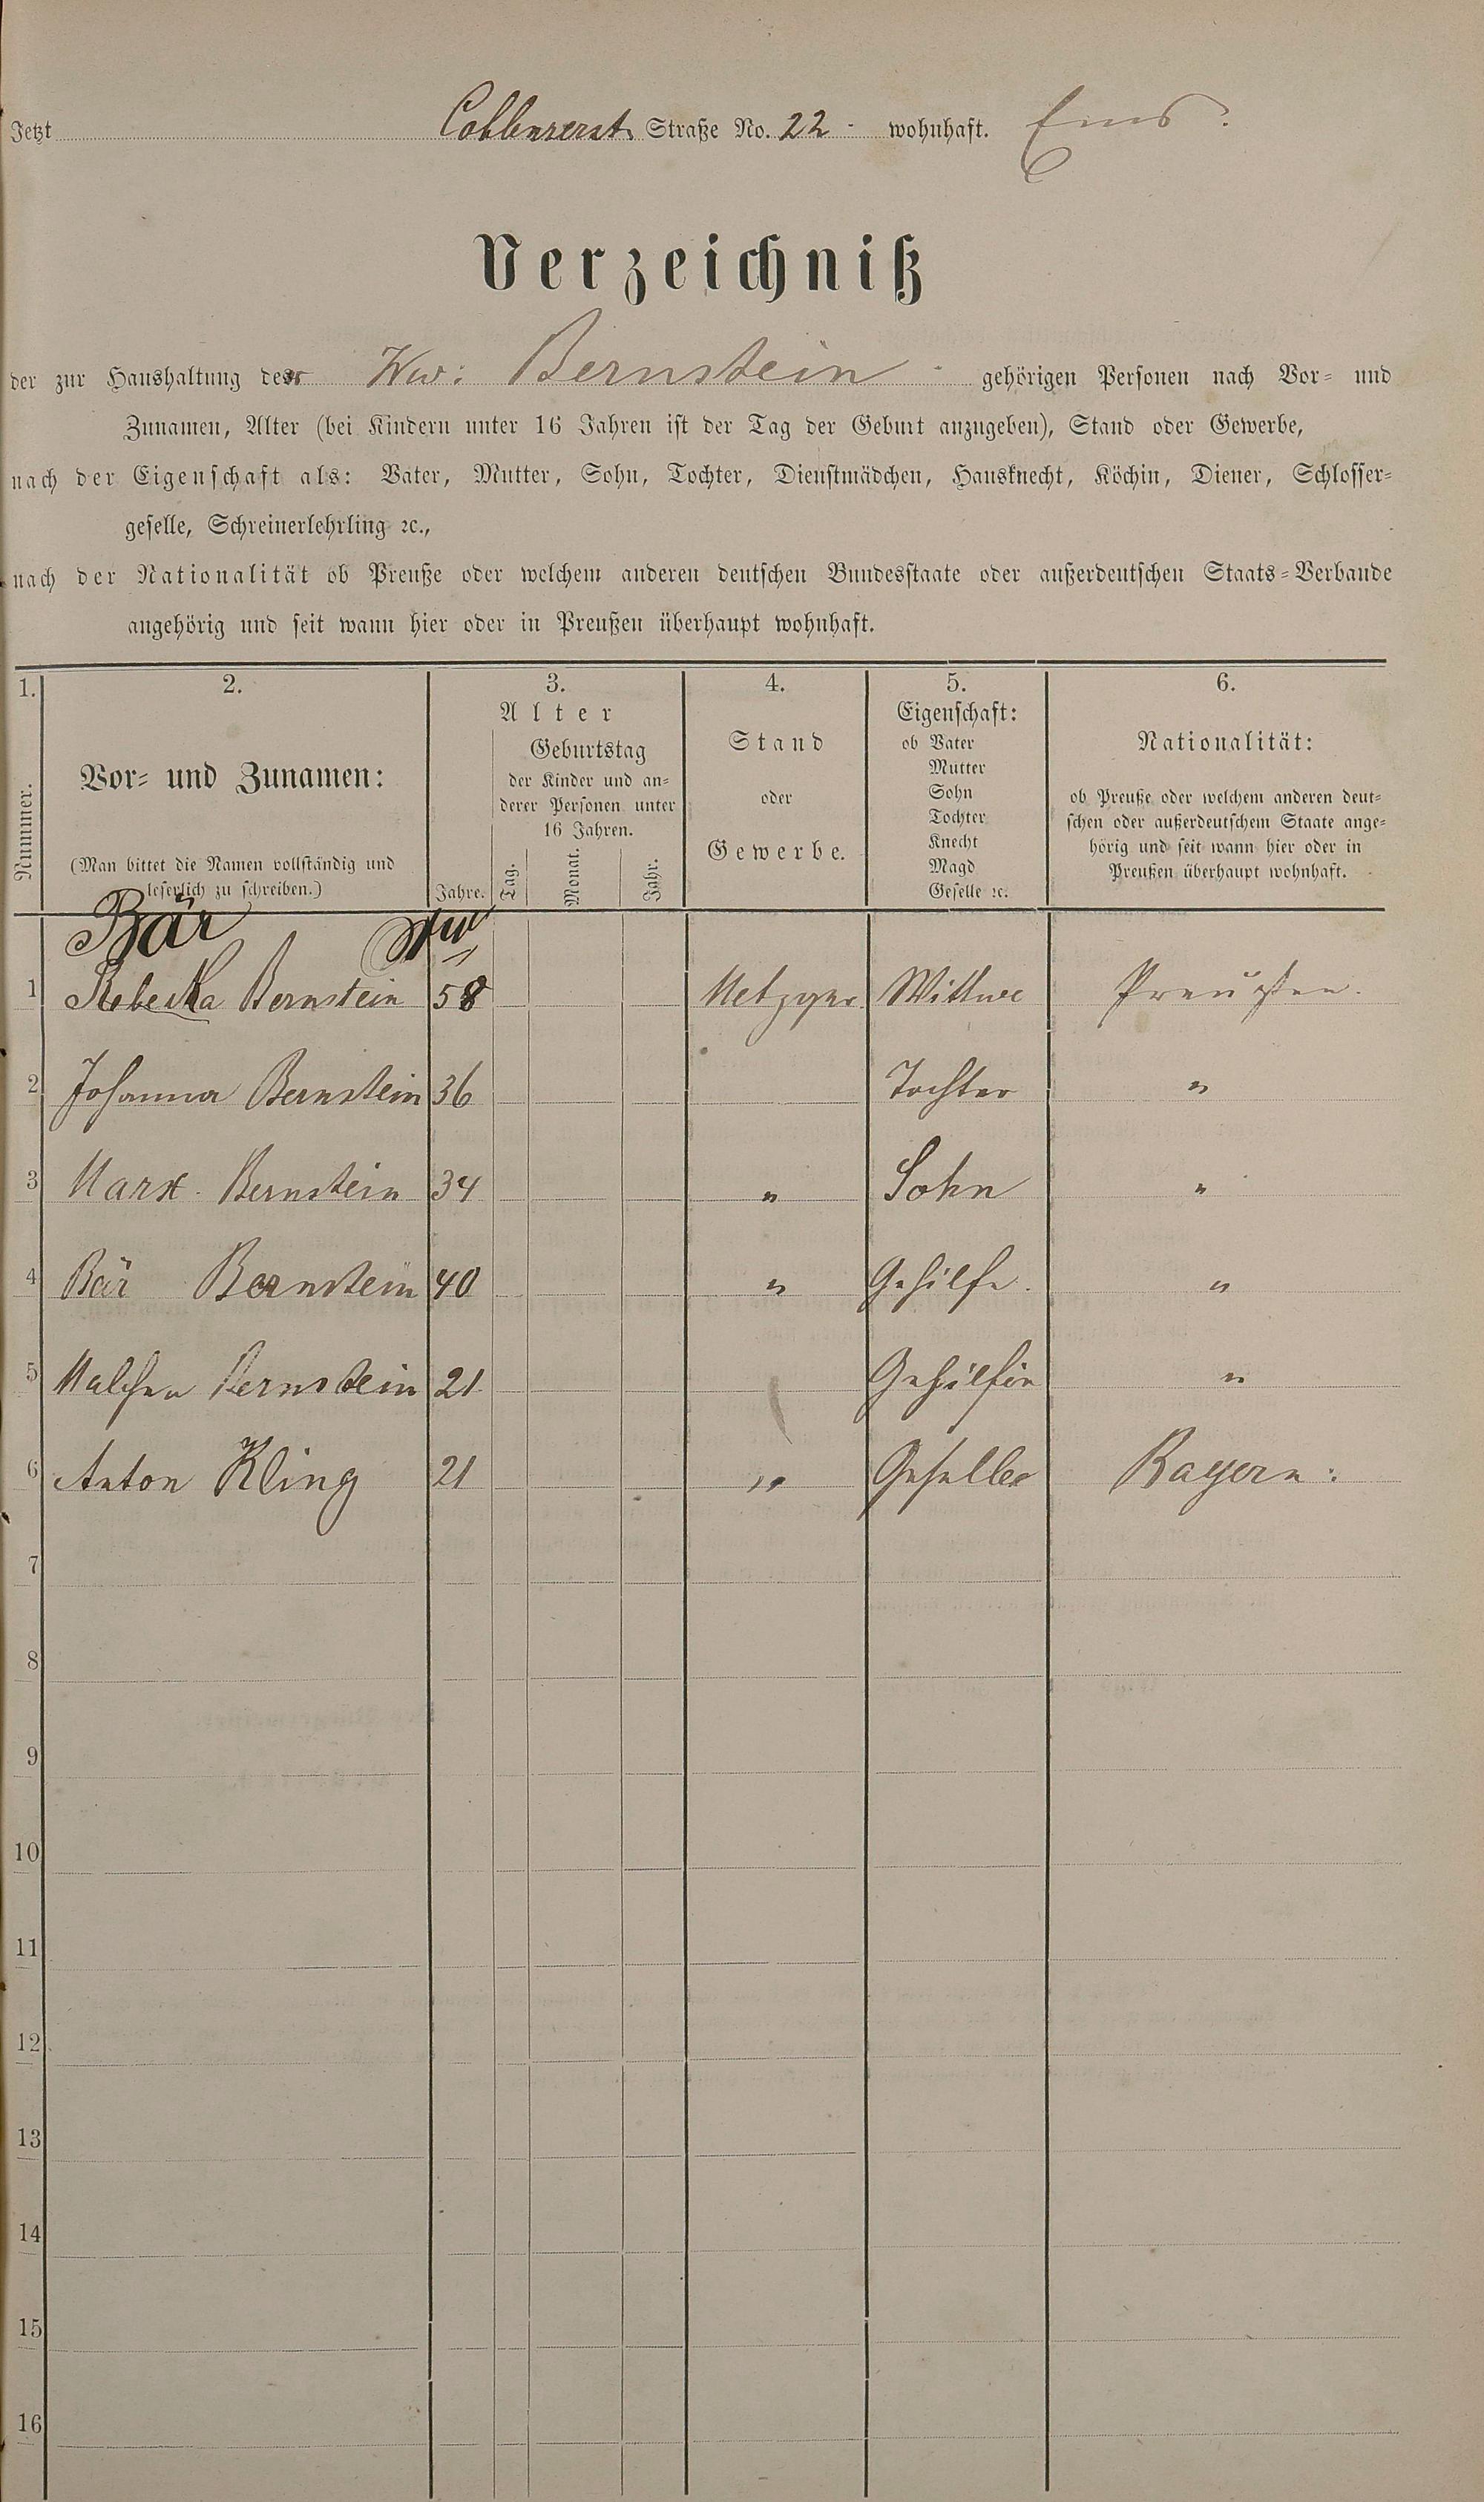 Jetzt Coblenzerst. Straße No. 22 - wohnhaft. Ems.
Verzeichniß
der zur Haushaltung der Ww: Bernstein gehörigen Personen nach Vor- und
Zunamen, Alter (bei Kindern unter 16 Jahren ist der Tag der Geburt anzugeben), Stand oder Gewerbe,
nach der Eigenschaft als: Vater, Mutter, Sohn, Tochter, Dienstmädchen, Hausknecht, Köchin, Diener, Schlosser-
geselle, Schreinerlehrling ꝛc.,
nach der Nationalität ob Preuße oder welchem anderen deutschen Bundesstaate oder außerdeutschen Staats-Verbande
angehörig und seit wann hier oder in Preußen überhaupt wohnhaft.
1.
Nummer.
2.
Vor- und Zunamen:
(Man bittet die Namen vollständig und
leserlich zu schreiben.)
3.
Alter
Jahre.
Geburtstag
der Kinder und an-
derer Personen unter
16 Jahren.
Tag. Monat. Jahr.
4.
Stand
oder
Gewerbe.
5.
Eigenschaft:
ob Vater
Mutter
Sohn
Tochter
Knecht
Magd
Geselle ꝛc.
6.
Nationalität:
ob Preuße oder welchem anderen deut-
schen oder außerdeutschem Staate ange-
hörig und seit wann hier oder in
Preußen überhaupt wohnhaft.
Bär Ww
1 Rebecka Bernstein 58 Metzger Wittwe Preußen.
2 Johanna Bernstein 36 Tochter "
3 Marx Bernstein 34 " Sohn "
4 Bär Bernstein 40 " Gehilfe. "
5 Malchen Bernstein 21 Gehilfin "
6 Anton Kling 21 " Geselle Bayern:
7
8
9
10
11
12
13
14
15
16